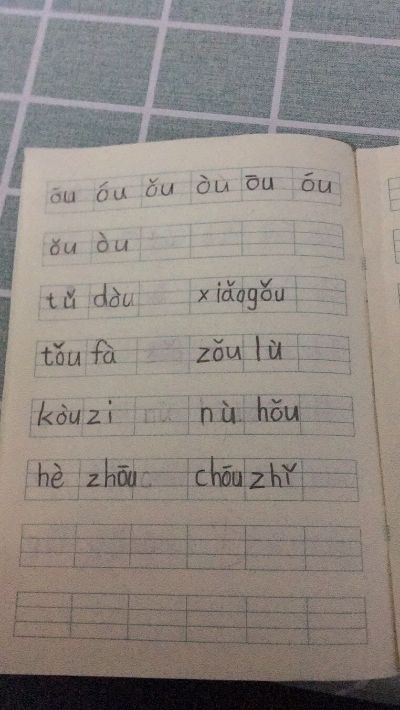 ōu óu ǒu òu ōu óu
ǒu òu
tǔ dòu xiǎogǒu
tǒu fà zǒu lù
kòu zi nù hǒu
hè zhōu chōu zhǐ